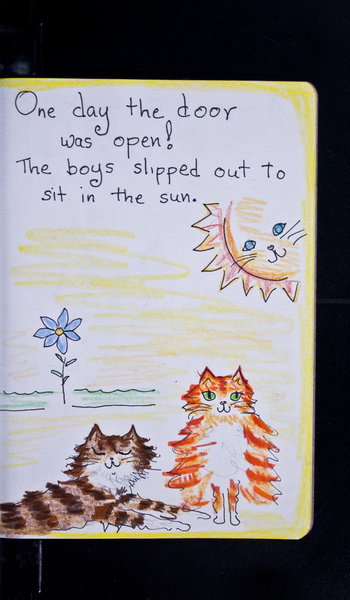 One day the door
was open!
The boys slipped out to
sit in the sun.